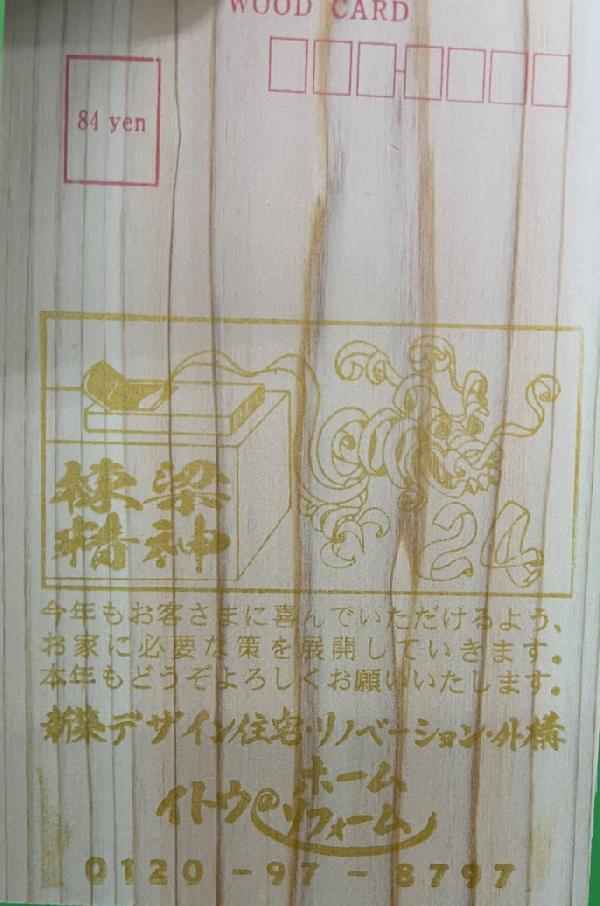 WOOD CARD
84 yen
棟梁
精神
24
今年もお客さまに喜んでいただけるよう、
お家に必要な策を展開していきます。
本年もどうぞよろしくお願いいたします。
新築デザイン住宅・リノベーション・外構
イトウ@ホームリフォーム
0120-97-8797